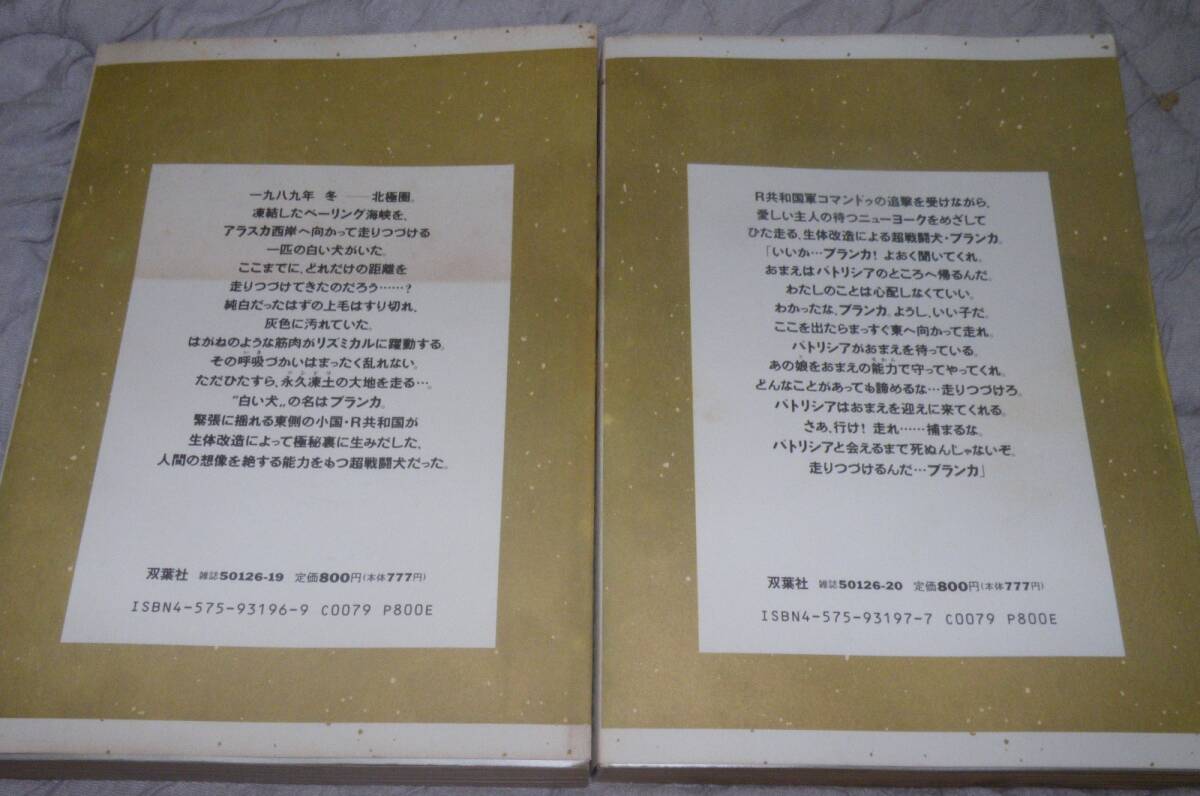 一九八九年 冬 ──北極圏。
凍結したベーリング海峡を、
アラスカ西岸へ向かって走りつづける
一匹の白い犬がいた。
ここまでに、どれだけの距離を
走りつづけてきたのだろう……?
純白だったはずの上毛はすり切れ、
灰色に汚れていた。
はがねのような筋肉がリズミカルに躍動する。
その呼吸づかいはまったく乱れない。
ただひたすら、永久凍土の大地を走る…。
"白い犬„の名はブランカ。
緊張に揺れる東側の小国・R共和国が
生体改造によって極秘裏に生みだした、
人間の想像を絶する能力をもつ超戦闘犬だった。
双葉社 雑誌50126-19 定価800円(本体777円)
ISBN4-575-93196-9 C0079 P800E
R共和国軍コマンドゥの追撃を受けながら、
愛しい主人の待つニューヨークをめざして
ひた走る、生体改造による超戦闘犬・ブランカ。
「いいか…ブランカ! よおく聞いてくれ。
おまえはパトリシアのところへ帰るんだ。
わたしのことは心配しなくていい。
わかったな、ブランカ。ようし、いい子だ。
ここを出たらまっすぐ東へ向かって走れ。
パトリシアがおまえを待っている。
あの娘をおまえの能力で守ってやってくれ。
どんなことがあっても諦めるな…走りつづけろ。
パトリシアはおまえを迎えに来てくれる。
さあ、行け! 走れ……捕まるな。
パトリシアと会えるまで死ぬんじゃないぞ。
走りつづけるんだ…ブランカ」
双葉社 雑誌50126-20 定価800円(本体777円)
ISBN4-575-93197-7 C0079 P800E